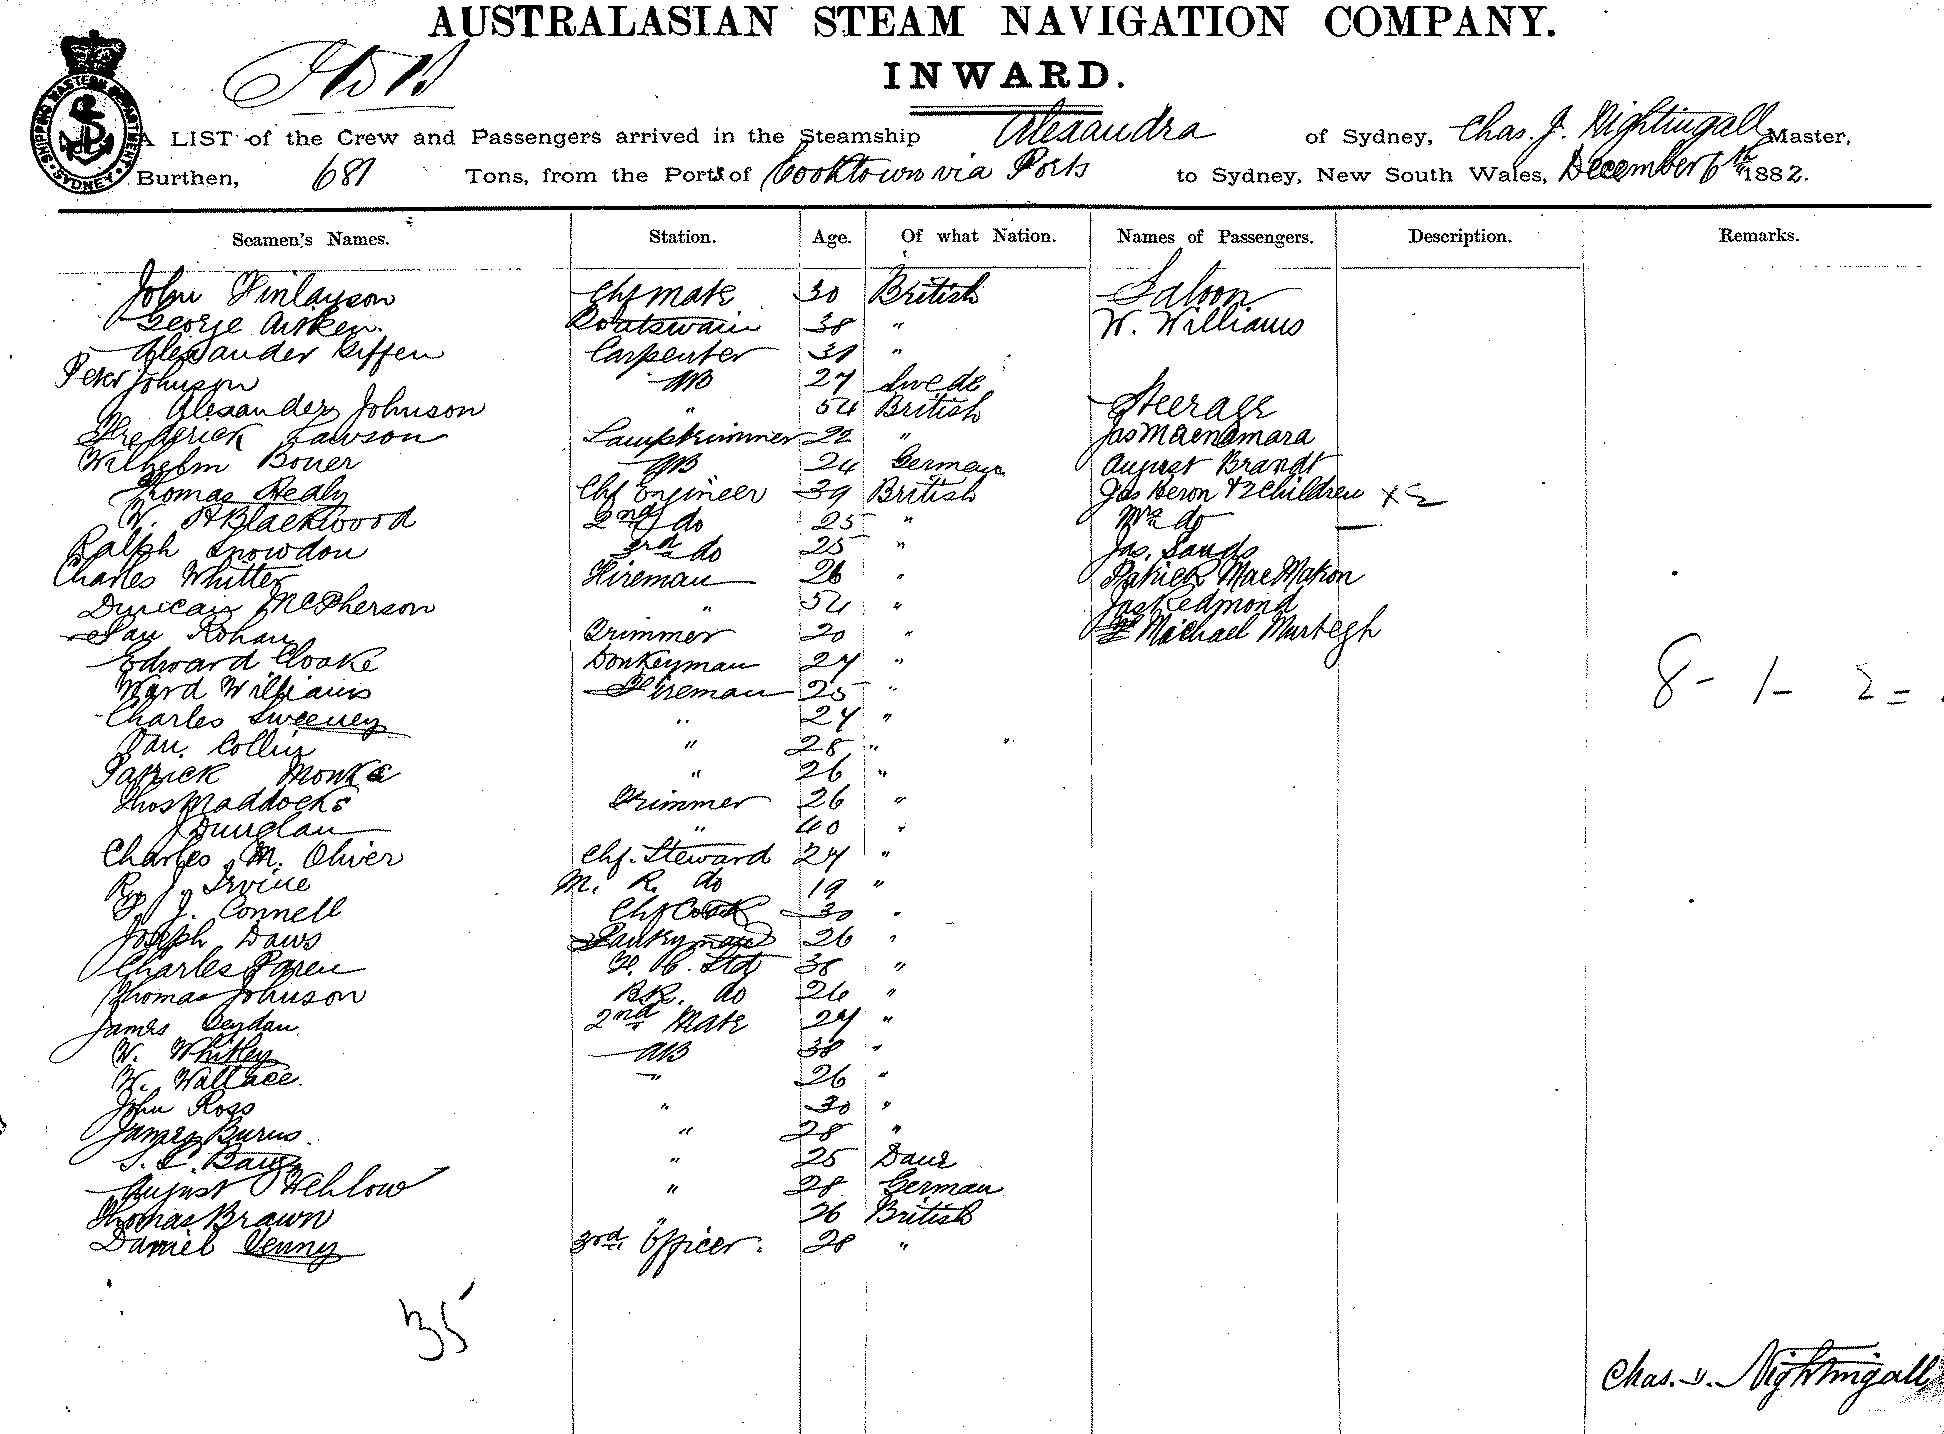 AUSTRALASIAN STEAM NAVIGATION COMPANY.
INWARD.
SHIPPING MASTERS DEPARTMENT SYDNEY
A LIST of the Crew and Passengers arrived in the Steamship Alexandra of Sydney, Chas. J. Nightingall Master,
Burthen, 681 Tons, from the Port of Cooktown via Ports to Sydney, New South Wales, December 6th 1882.
Seamen's Names. Station. Age. Of what Nation. Names of Passengers. Description. Remarks.
John Finlayson Chf Mate 30 British Saloon
George Aitken. Boatswain 38 " W. Williams
Alexander Giffen Carpenter 31 "
Peter Johnson AB 27 Swede
Alexander Johnson " 54 British Steerage
Frederick Lawson Lamptrimmer 22 " Jas Macnamara
Wilhelm Bouer AB 24 German August Brandt
Thomas Healy Chf Engineer 39 British Jas Heron & 2 children x 2
W. A Blackwood 2nd do 25 " Mrs do
Ralph Snowdon 3rd do 25 " Jas. Sands
Charles Whitter Fireman 26 " Patrick MacMahon
Duncan McPherson " 54 " Jas Redmond
Dan Rohan Trimmer 20 " Michael Murtegh
Edward Cloake Donkeyman 27 "
Ward Williams Fireman 25 "
8 - 1 - 2 =
Charles Sweeney " 27 "
Dan. Collin " 28 "
Patrick Monks " 26 "
Thos Maddocks Trimmer 26 "
J Dunglan " 40 "
Charles M. Oliver Chf. Steward 27 "
R. J. Irvine M. R. do 19 "
J. Connell Chf Cook 30 "
Joseph Daws Pantryman 26 "
Charles Paren F. C. Std 38 "
Thomas Johnson BR. do 26 "
James Leydan 2nd Mate 27 "
W. Whitley AB 38 "
W. Wallace. " 26 "
John Ross " 30 "
James Burns. " 28 "
" 25 Dane
August Wehlow " 28 German
Thomas Brawn " 26 British
Daniel Venny 3rd Officer. 28 "
35
Chas. J. Nightingall